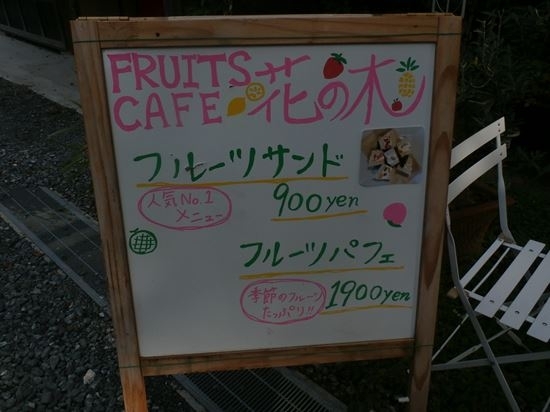 FRUITS
CAFE 花の木
フルーツサンド
人気No.1
メニュー
900yen
フルーツパフェ
季節のフルーツ
たっぷり!!
1900yen